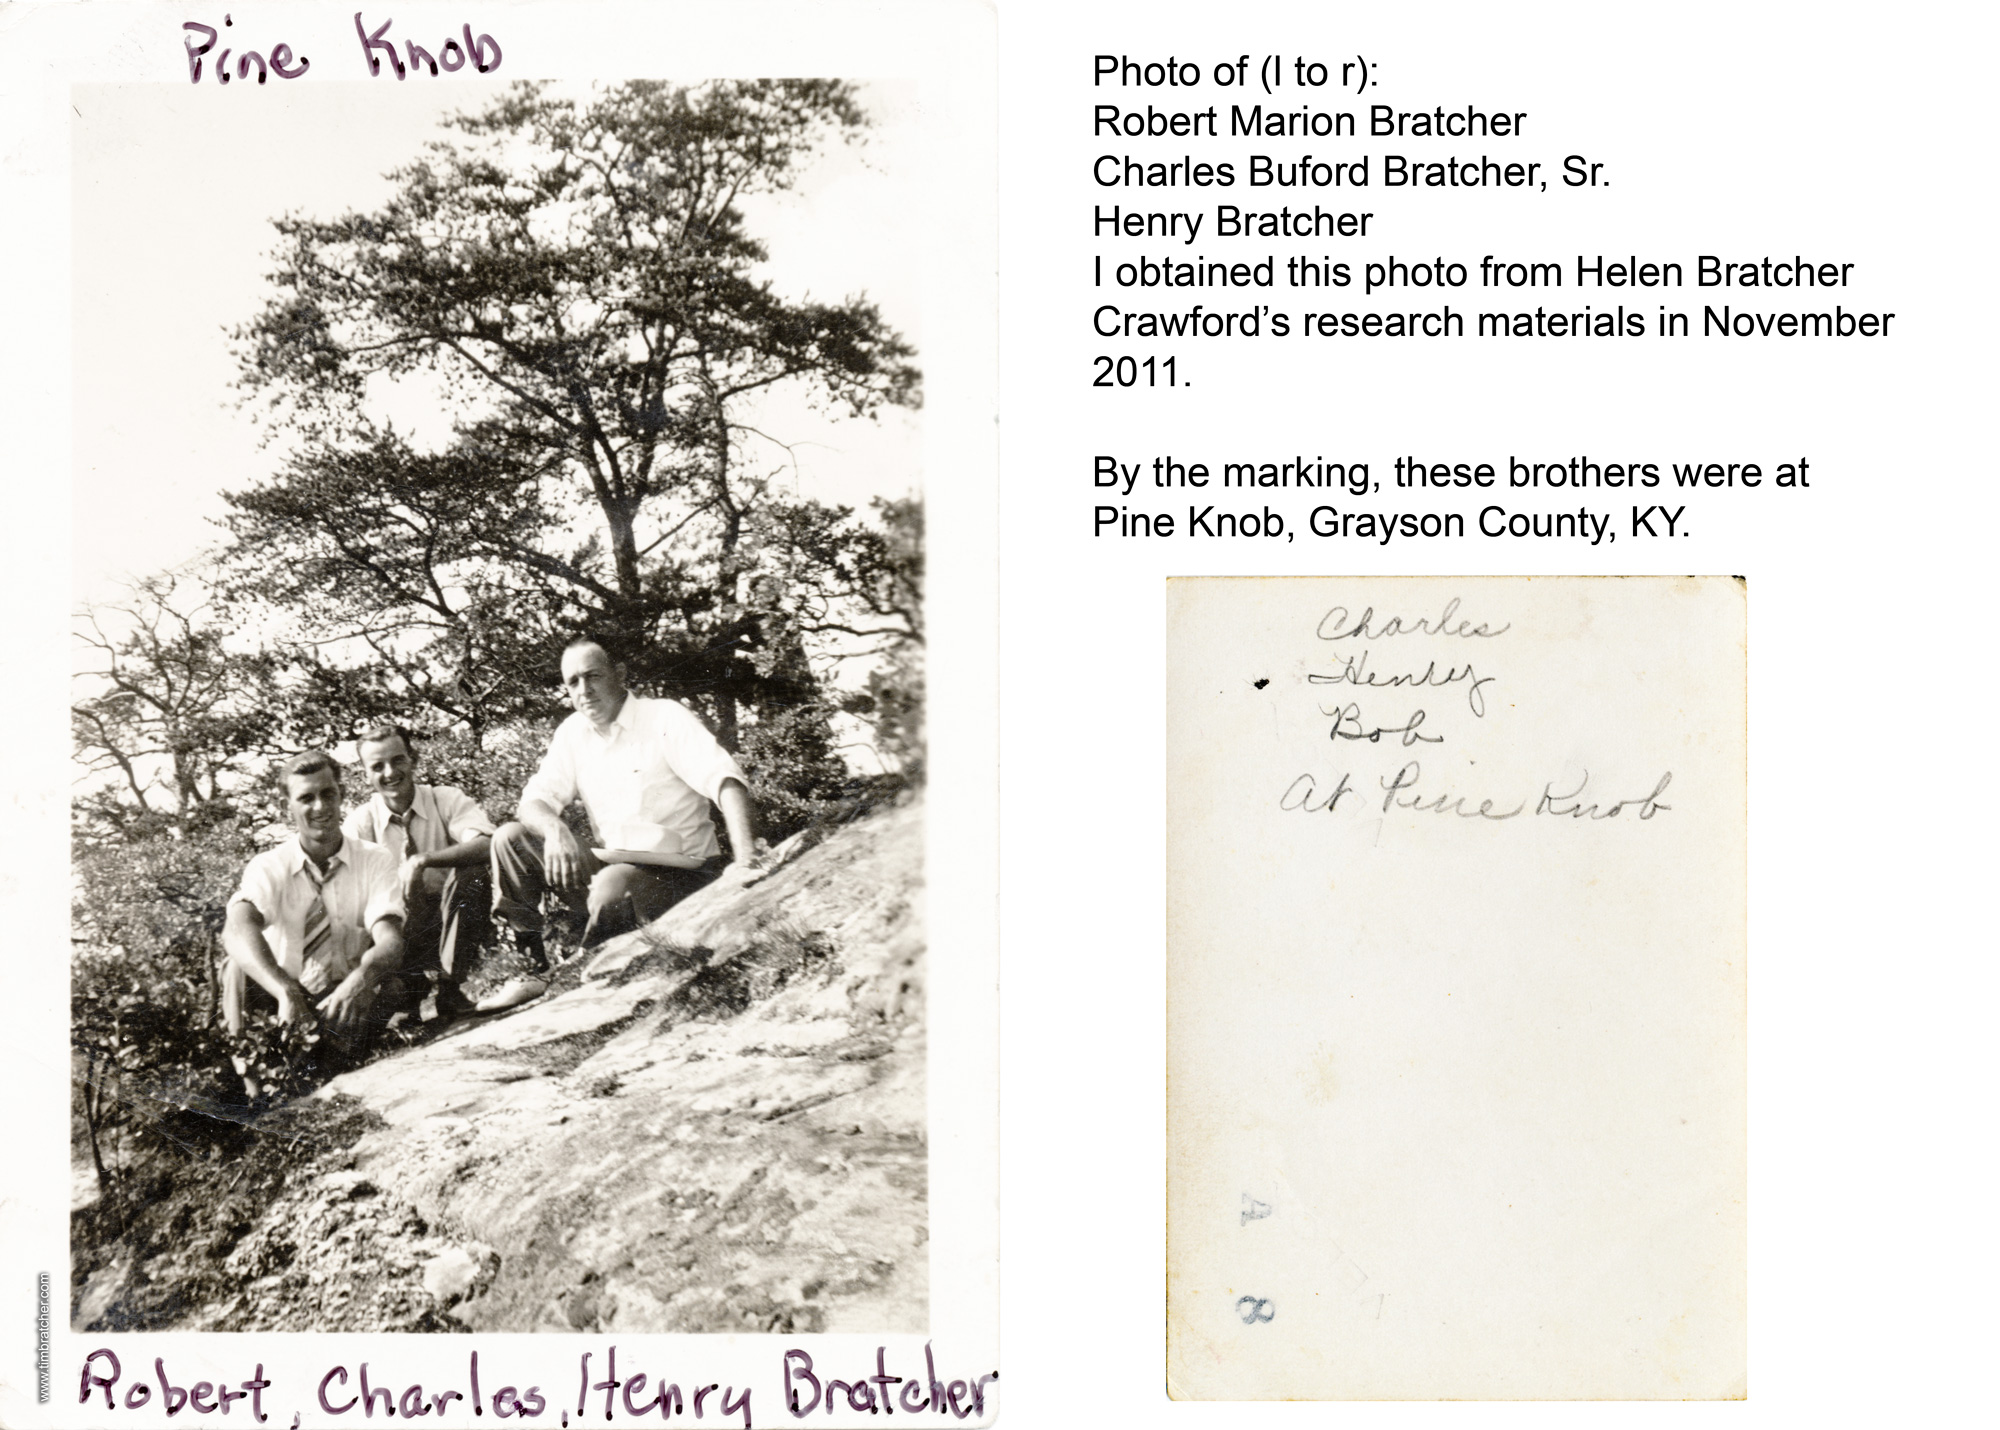 Pine Knob
Robert, Charles, Henry Bratcher
www.timbratcher.com
Photo of (l to r):
Robert Marion Bratcher
Charles Buford Bratcher, Sr.
Henry Bratcher
I obtained this photo from Helen Bratcher
Crawford’s research materials in November
2011.
By the marking, these brothers were at
Pine Knob, Grayson County, KY.
Charles
Henry
Bob
At Pine Knob
A
8